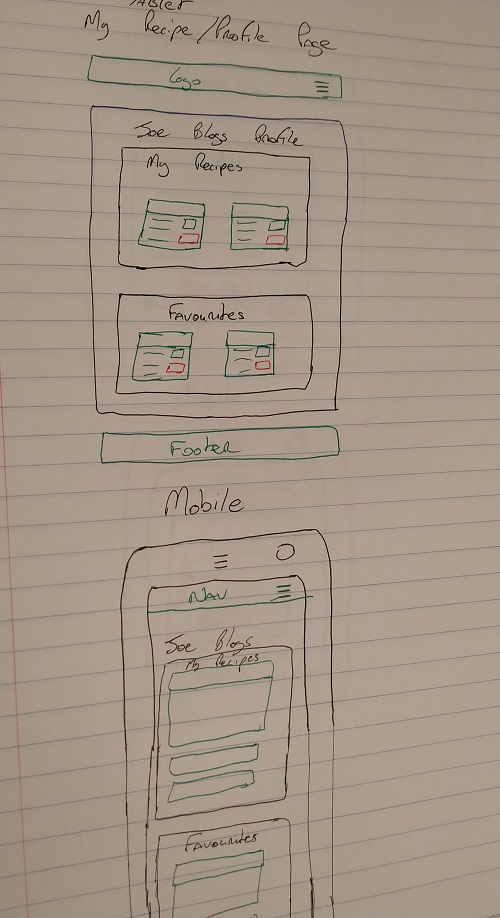 Tablet
My Recipe/Profile Page
Logo
Joe Blogs Profile
My Recipes
Favourites
Footer
Mobile
Nav
Joe Blogs
My Recipes
Favourites